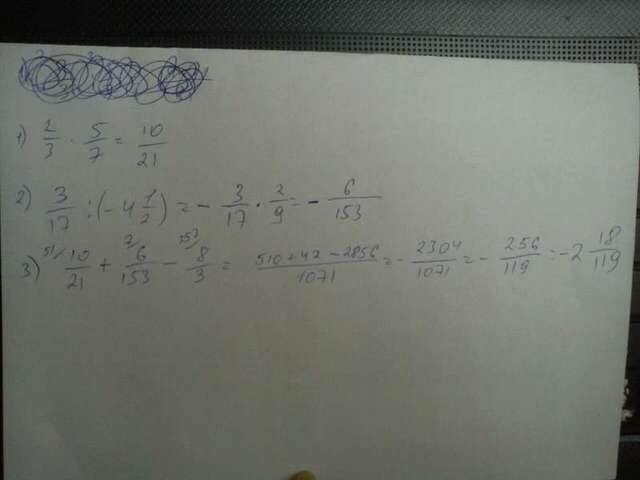 1) 2/3 · 5/7 = 10/21
2) 3/17 : (-4 1/2) = - 3/17 · 2/9 = - 6/153
3) 51/ 10/21 + 7/ 6/153 - 357/ 8/3 = 510+42-2856/1071 = - 2304/1071 = - 256/119 = -2 18/119